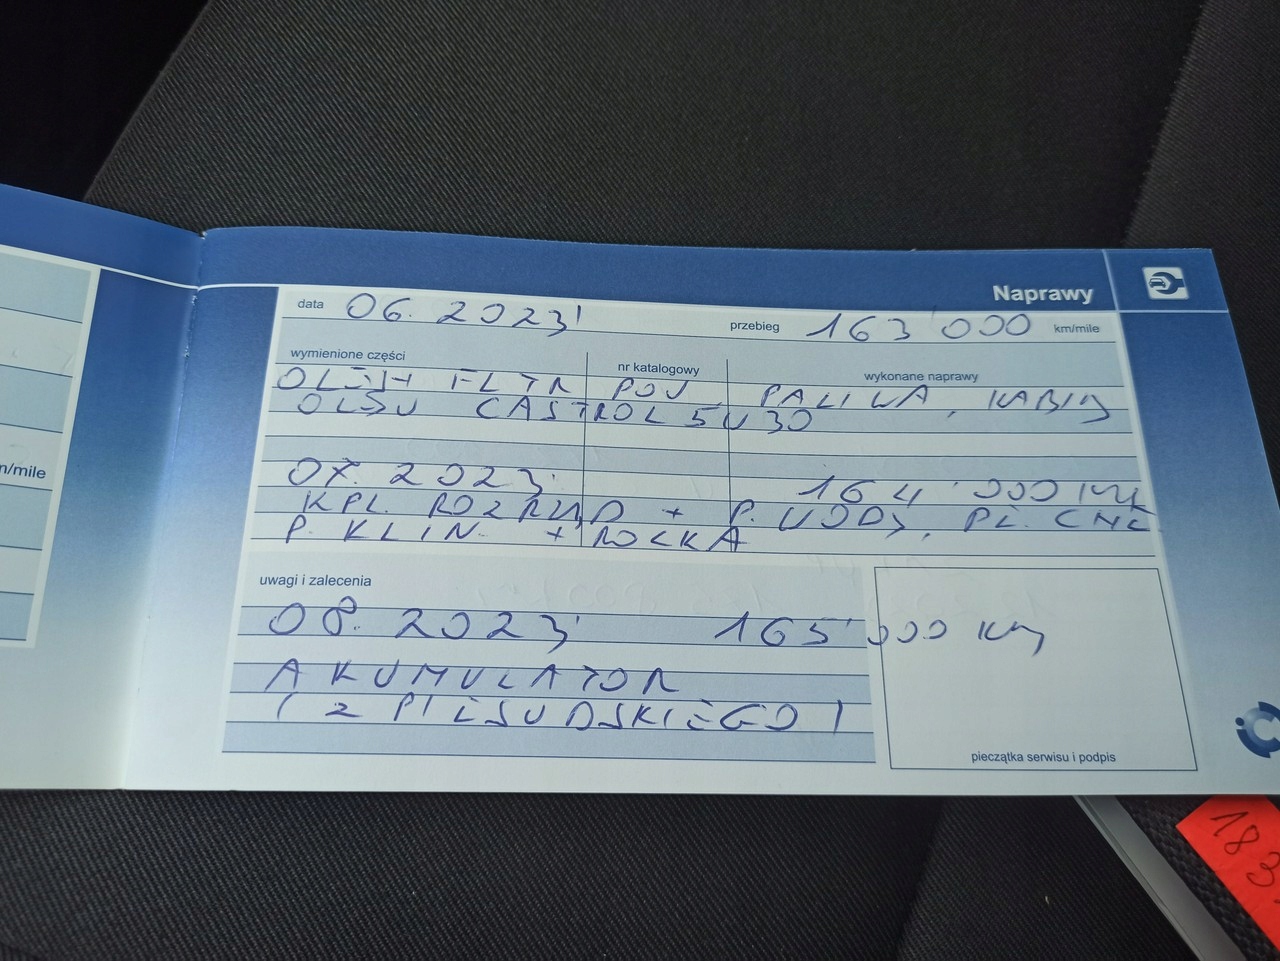 Naprawy
data 06. 2023' przebieg 163'000 km/mile
wymienione części nr katalogowy wykonane naprawy
OLEJ + FLTR POW PALIWA, KABIN
OLEJ CASTROL 5W30
n/mile
07. 2023' 164'000 KM
KPL. ROZRZĄD + P. WODY, PŁ. CHŁ
P. KLIN. + ROLKA
uwagi i zalecenia
08. 2023' 165'000 KM
AKUMULATOR
( Z PIŁSUDSKIEGO )
pieczątka serwisu i podpis
183